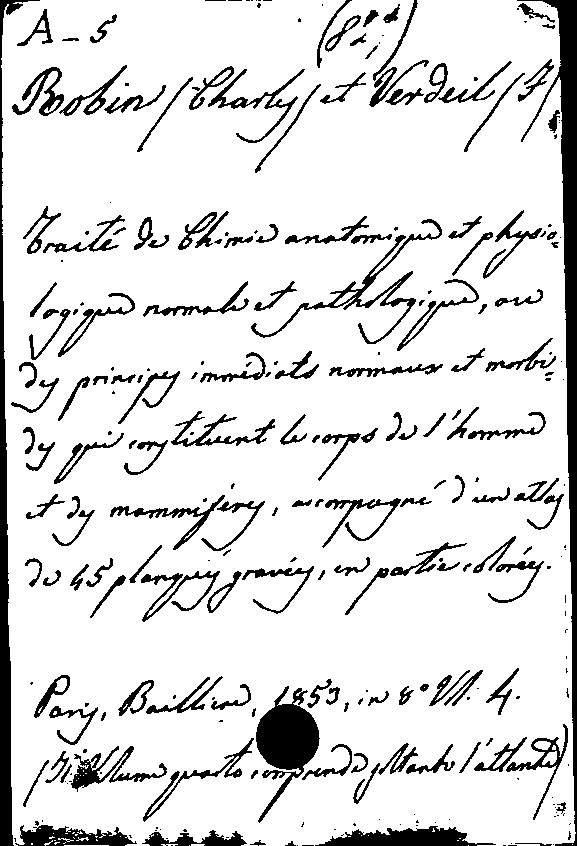 A-5
Robin (Charles) et Verdeil (F)
Traité de Chimie anatomique et physio=
logique normale et pathologique, ou
des principes immédiats normaux et morbi=
des qui constituent le corps de l'homme
et des mammifères, accompagné d'un atlas
de 45 planques gravées, en partie colorées.
Paris, Baillière, 1853, in 8° Vll. 4.
volume quarto comprende soltanto l'atlante)